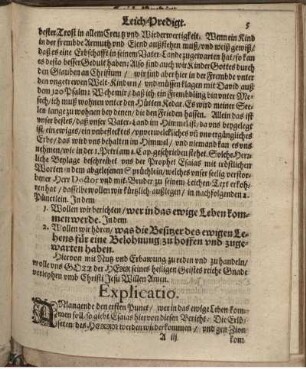 Leich-Predigt. 5
bester Trost in allem Creutz vnd Wiederwertigkeit. Wenn ein Kind
in der Frembde Armuth vnd Elend außstehen muß/ vnd weiß gewiß/
daß es eine Erbschafft in seinem Vaterlande zugewarten hat/ so kan
es desto besser Gedult haben: Also sind auch wir Kinder Gottes durch
den Glauben an Christum/ wir sind aber hier in der Frembde vnter
den vngetrewen Welt-Kindern/ vnd müssen klagen mit David auß
dem 120 Psalm: Wehe mir/ daß ich ein Frembdling bin vnter Me-
sech/ ich muß wohnen vnter den Hütten Kedar. Es wird meiner See-
len lange zu wohnen bey denen/ die den Frieden hassen. Allein das ist
vnser bestes/ daß vnser Vaterland im Himmel ist/ da vns beygelegt
ist ein ewiges/ vnbeflecktes/ vnd vnvergängliches
Erbe/ das wird vns behalten im Himmel/ vnd niemand kan es vns
nehmen/ wie in der 1. Petri am 1. Cap. geschrieben stehet. Solche Herr-
liche Beylage beschreibet vns der Prophet Esaias mit tröstlichen
Worten in dem abgelesenen Sprüchlein/ welches vnser selig verstor-
bener Herr Doctor vnd mit-Bruder zu seinem Leichen-Text erkoh-
ren hat/ dasselbe wollen wir kürtzlich außlegen/ in nachfolgenden 2.
Pünctlein. Indem
1. Wollen wir berichten/ wer in das ewige Leben kom-
men werde. Indem
2. Wollen wir hören/ was die Besitzer des ewigen Le-
bens für eine Belohnung zu hoffen vnd zuge-
warten haben.
Hiervon mit Nutz vnd Erbawung zu reden vnd zu handeln/
wolle vns GOtt der HErr seines heiligen Geistes reiche Gnade
verleyhen vmb Christi Jesu Willen/ Amen.
Explicatio.
Anlangende den ersten Punct/ wer in das ewige Leben kom-
men soll/ so giebt Esaias hiervon diesen Bericht: Die Erlö-
seten des HErren werden wiederkommen/ vnd gen Zion
A iij kom